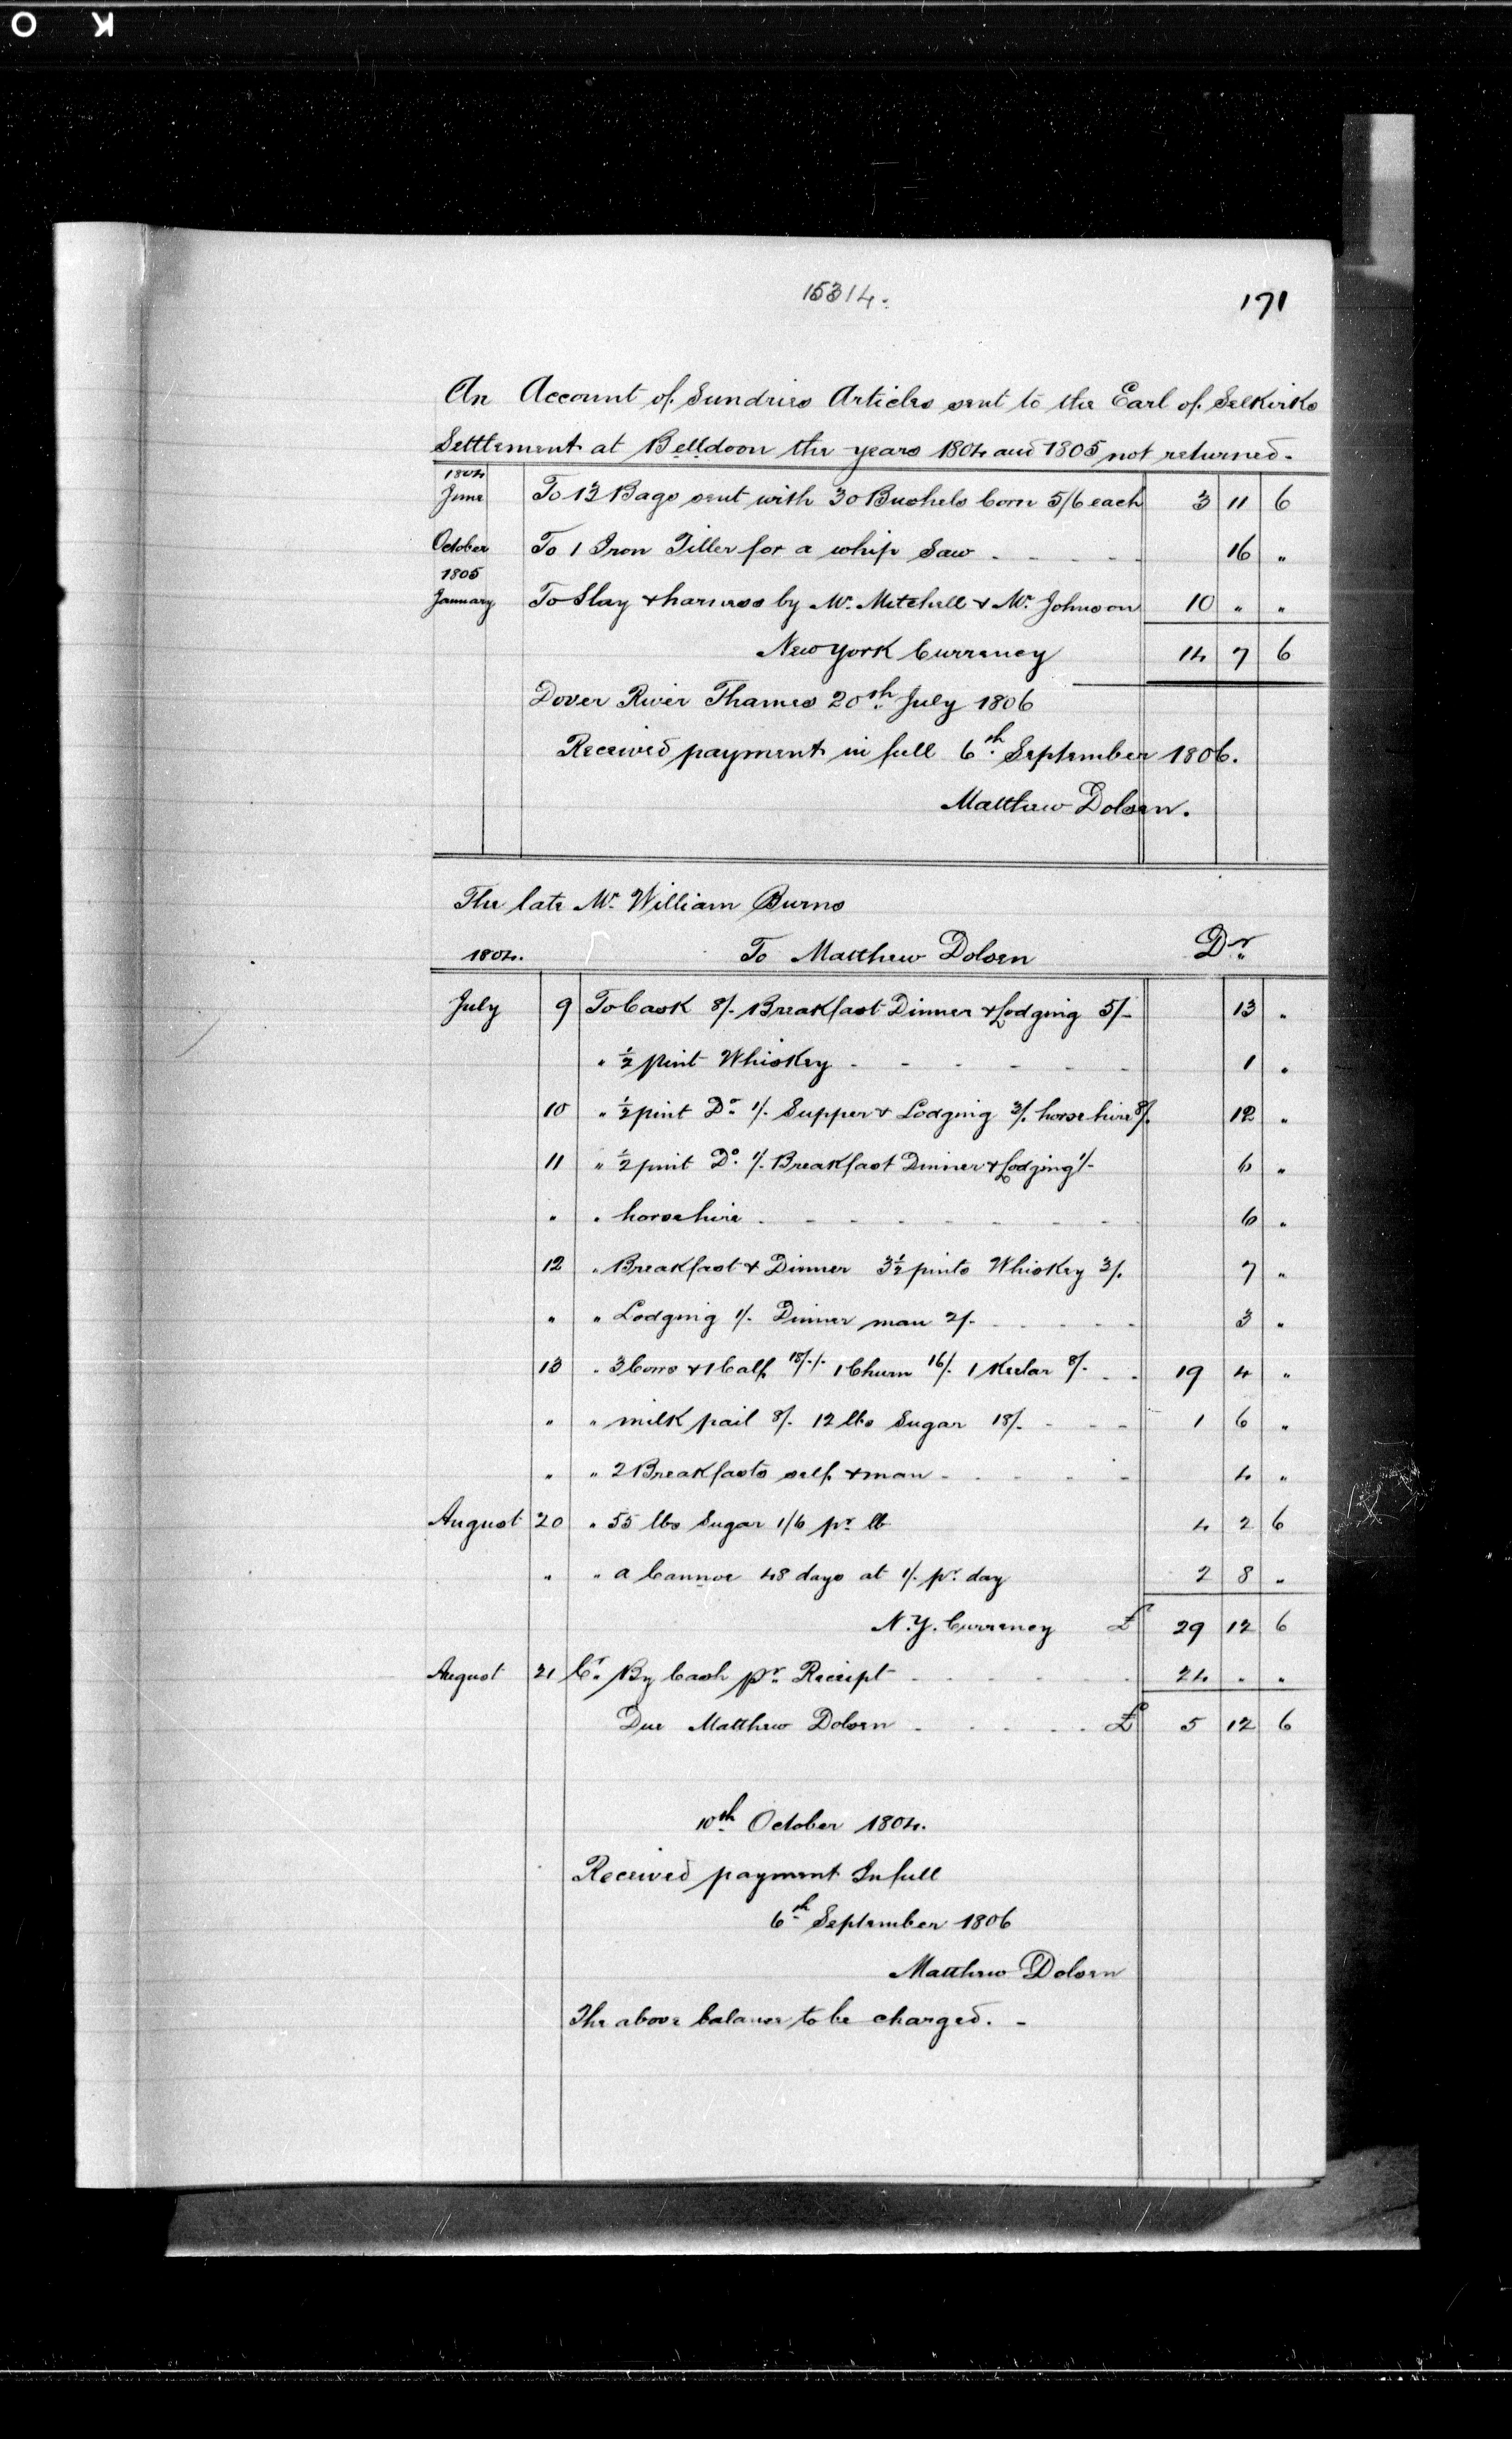 O K
15314.
171
An Account of Sundries Articles sent to the Earl of Selkirks
Settlement at Belldoon the years 1804 and 1805 not returned.
1804
June To 13 Bags sent with 30 Bushels Corn 5/6 each 3 11 6
October To 1 Iron Tiller for a whip Saw - - - - 16 "
1805
January To Slay & harness by Mr. Mitchell & Mr. Johnson 10 " "
New York Currency 14 7 6
Dover River Thames 20th July 1806
Received payment in full 6th September 1806.
Matthew Dolsen.
The late Mr. William Burns
1804. To Matthew Dolsen Dr
July 9 To Cask 8/- Breakfast Dinner & Lodging 5/- 13 "
" ½ pint Whiskey - - - - - - 1 "
10 " ½ pint Do 1/- Supper & Lodging 3/. horse hire 8/. 12 "
11 " ½ pint Do. 1/- Breakfast Dinner & Lodging 1/- 6 "
" " horse hire - - - - - - - - 6 "
12 " Breakfast & Dinner 3½ pints Whiskey 3/. 7 "
" " Lodging 1/- Dinner man 2/- - - - - 3 "
13 " 3 Cows & 1 Calf 18/-/- 1 Churn 16/- 1 Keelar 8/- - - 19 4 "
" " milk pail 8/- 12 lbs Sugar 18/- - - - 1 6 "
" " 2 Breakfasts self & man - - - - - 4 "
August 20 " 55 lbs Sugar 1/6 pr lb 4 2 6
" " a Cannoe 48 days at 1/- pr. day 2 8 "
N.Y. Currency £ 29 12 6
August 21 Cr. By Cash pr Receipt - - - - - 24 " "
Due Matthew Dolsen - - - - - £ 5 12 6
10th October 1804.
Received payment In full
6th September 1806
Matthew Dolsen
The above balance to be charged. -